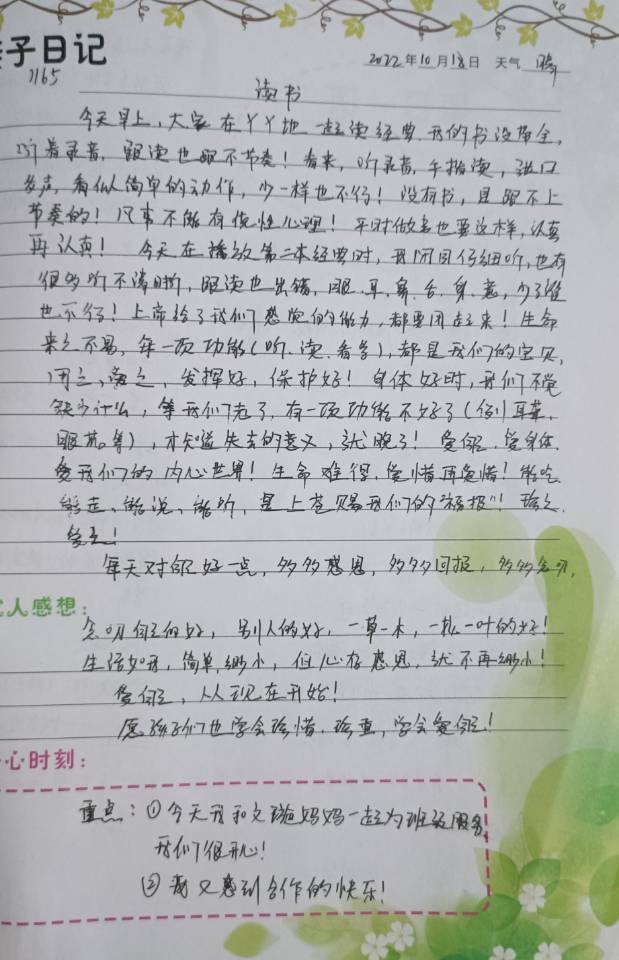 子日记
2022年10月18日 天气 晴
1165
读书
今天早上,大家在丫丫地一起读经典,我的书没带全,
听着录音,跟读也跟不节奏!看来,听录音,手指读,张口
发声,看似简单的动作,少一样也不行!没有书,是跟不上
节奏的!凡事不能有侥幸心理!平时做事也要这样,认真
再认真!今天在播放第二本经典时,我闭目仔细听,也有
很多听不清晰,跟读也出错,眼、耳、鼻、舌、身、意,少了谁
也不行!上帝给了我们感觉的能力,都要用起来!生命
来之不易,每一项功能(听、读、看等),都是我们的宝贝,
用之,爱之,发挥好,保护好!身体好时,我们不觉
缺少什么,等我们老了,有一项功能不好了(例耳聋、
眼花等),才知道失去的意义,就晚了!爱自己,爱身体,
爱我们的内心世界!生命难得,爱惜再爱惜!能吃、
能走、能说、能听,是上苍赐我们的"福报"!珍之、
爱之!
每天对自己好一点,多多感恩,多多回报,多多念叨,
人感想:
念叨自己的好,别人的好,一草一木,一枝一叶的好!
生活如我,简单,渺小,但心存感恩,就不再渺小!
爱自己,从现在开始!
愿孩子们也学会珍惜、珍重,学会爱自己!
心时刻:
重点:①今天我和文璇妈妈一起为班级服务,
我们很开心!
②我又感到合作的快乐!